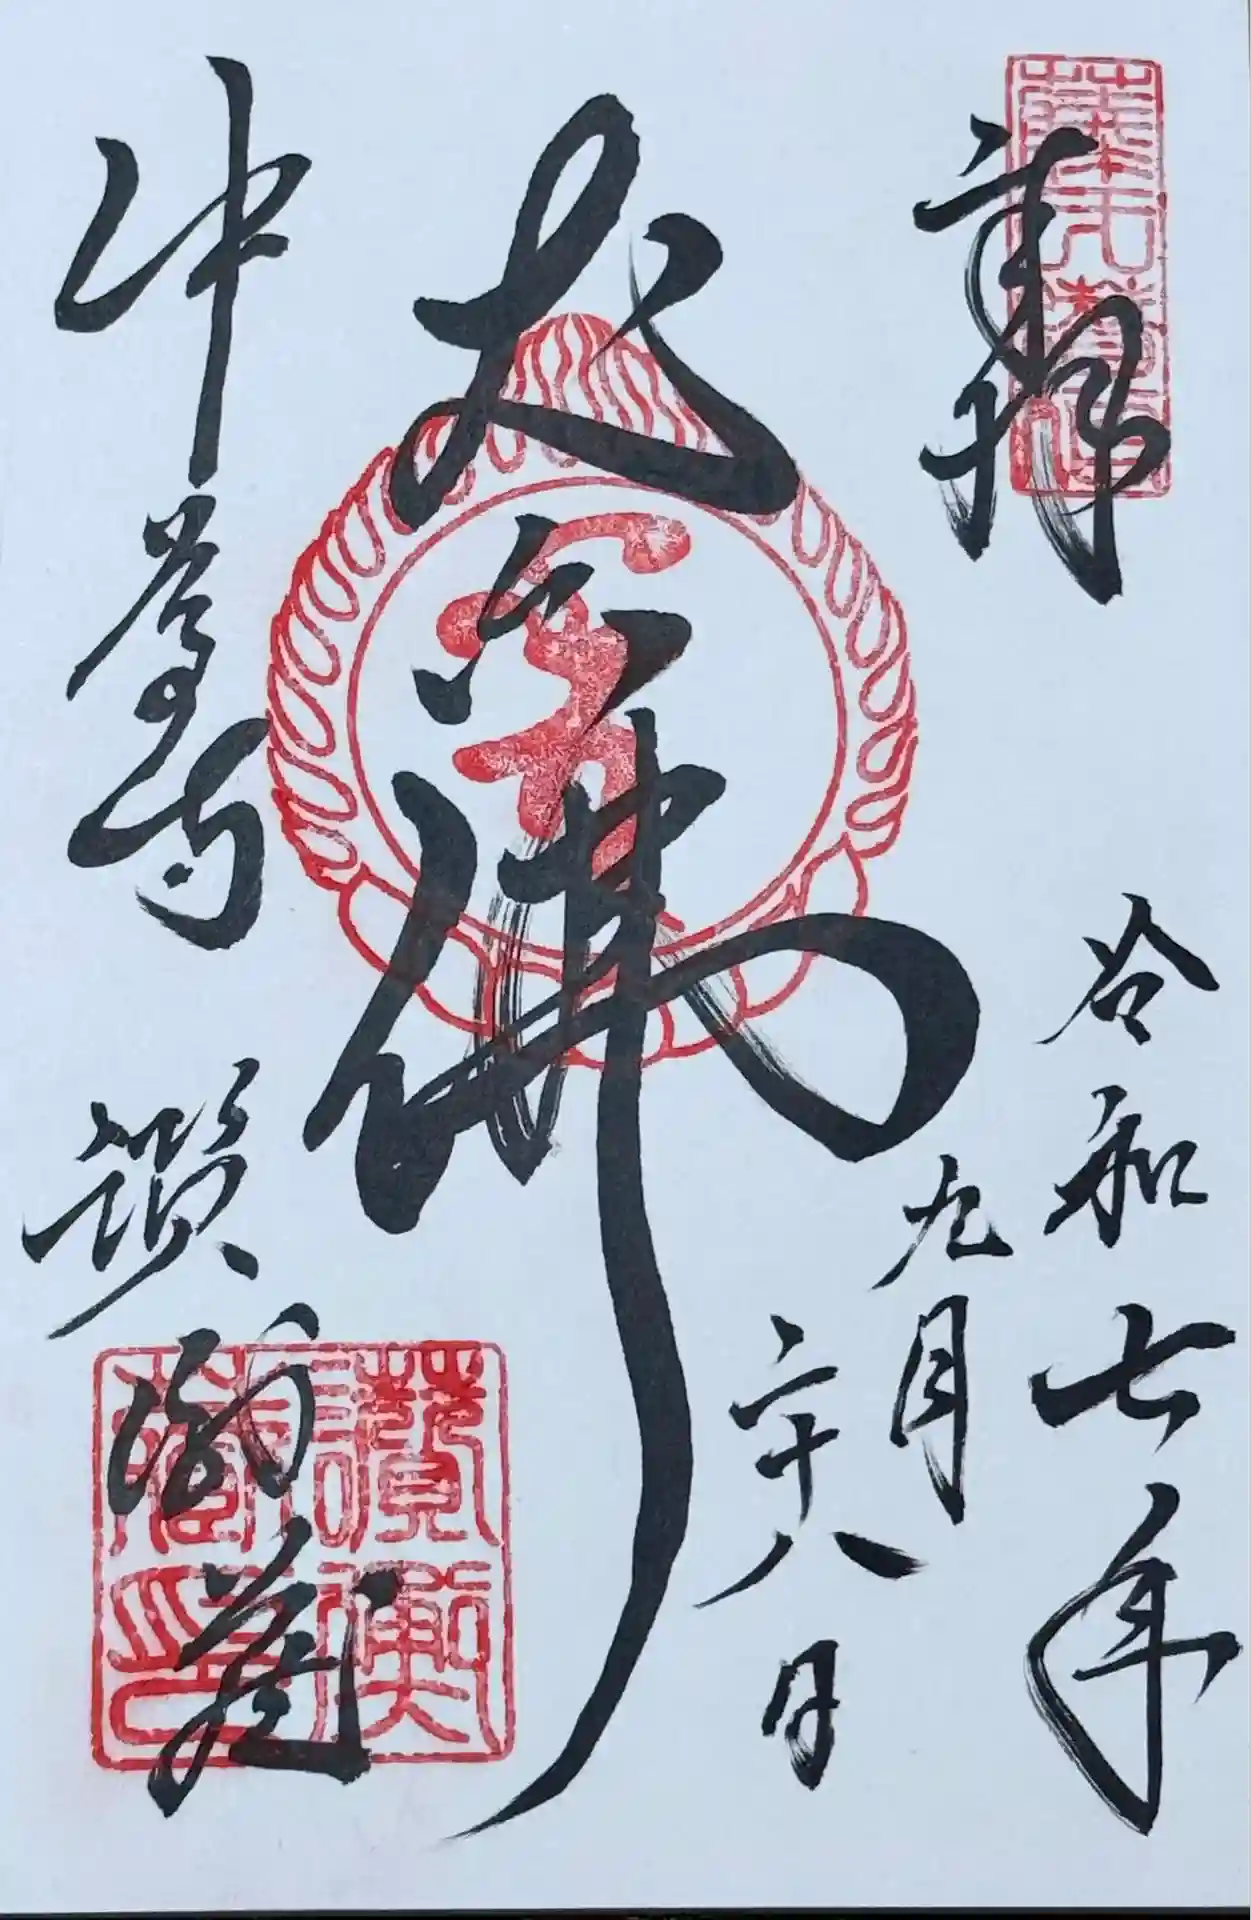 奉拝
令和七年
九月
二十八日
丈六佛
中尊寺
讃衡蔵
讃衡
蔵印